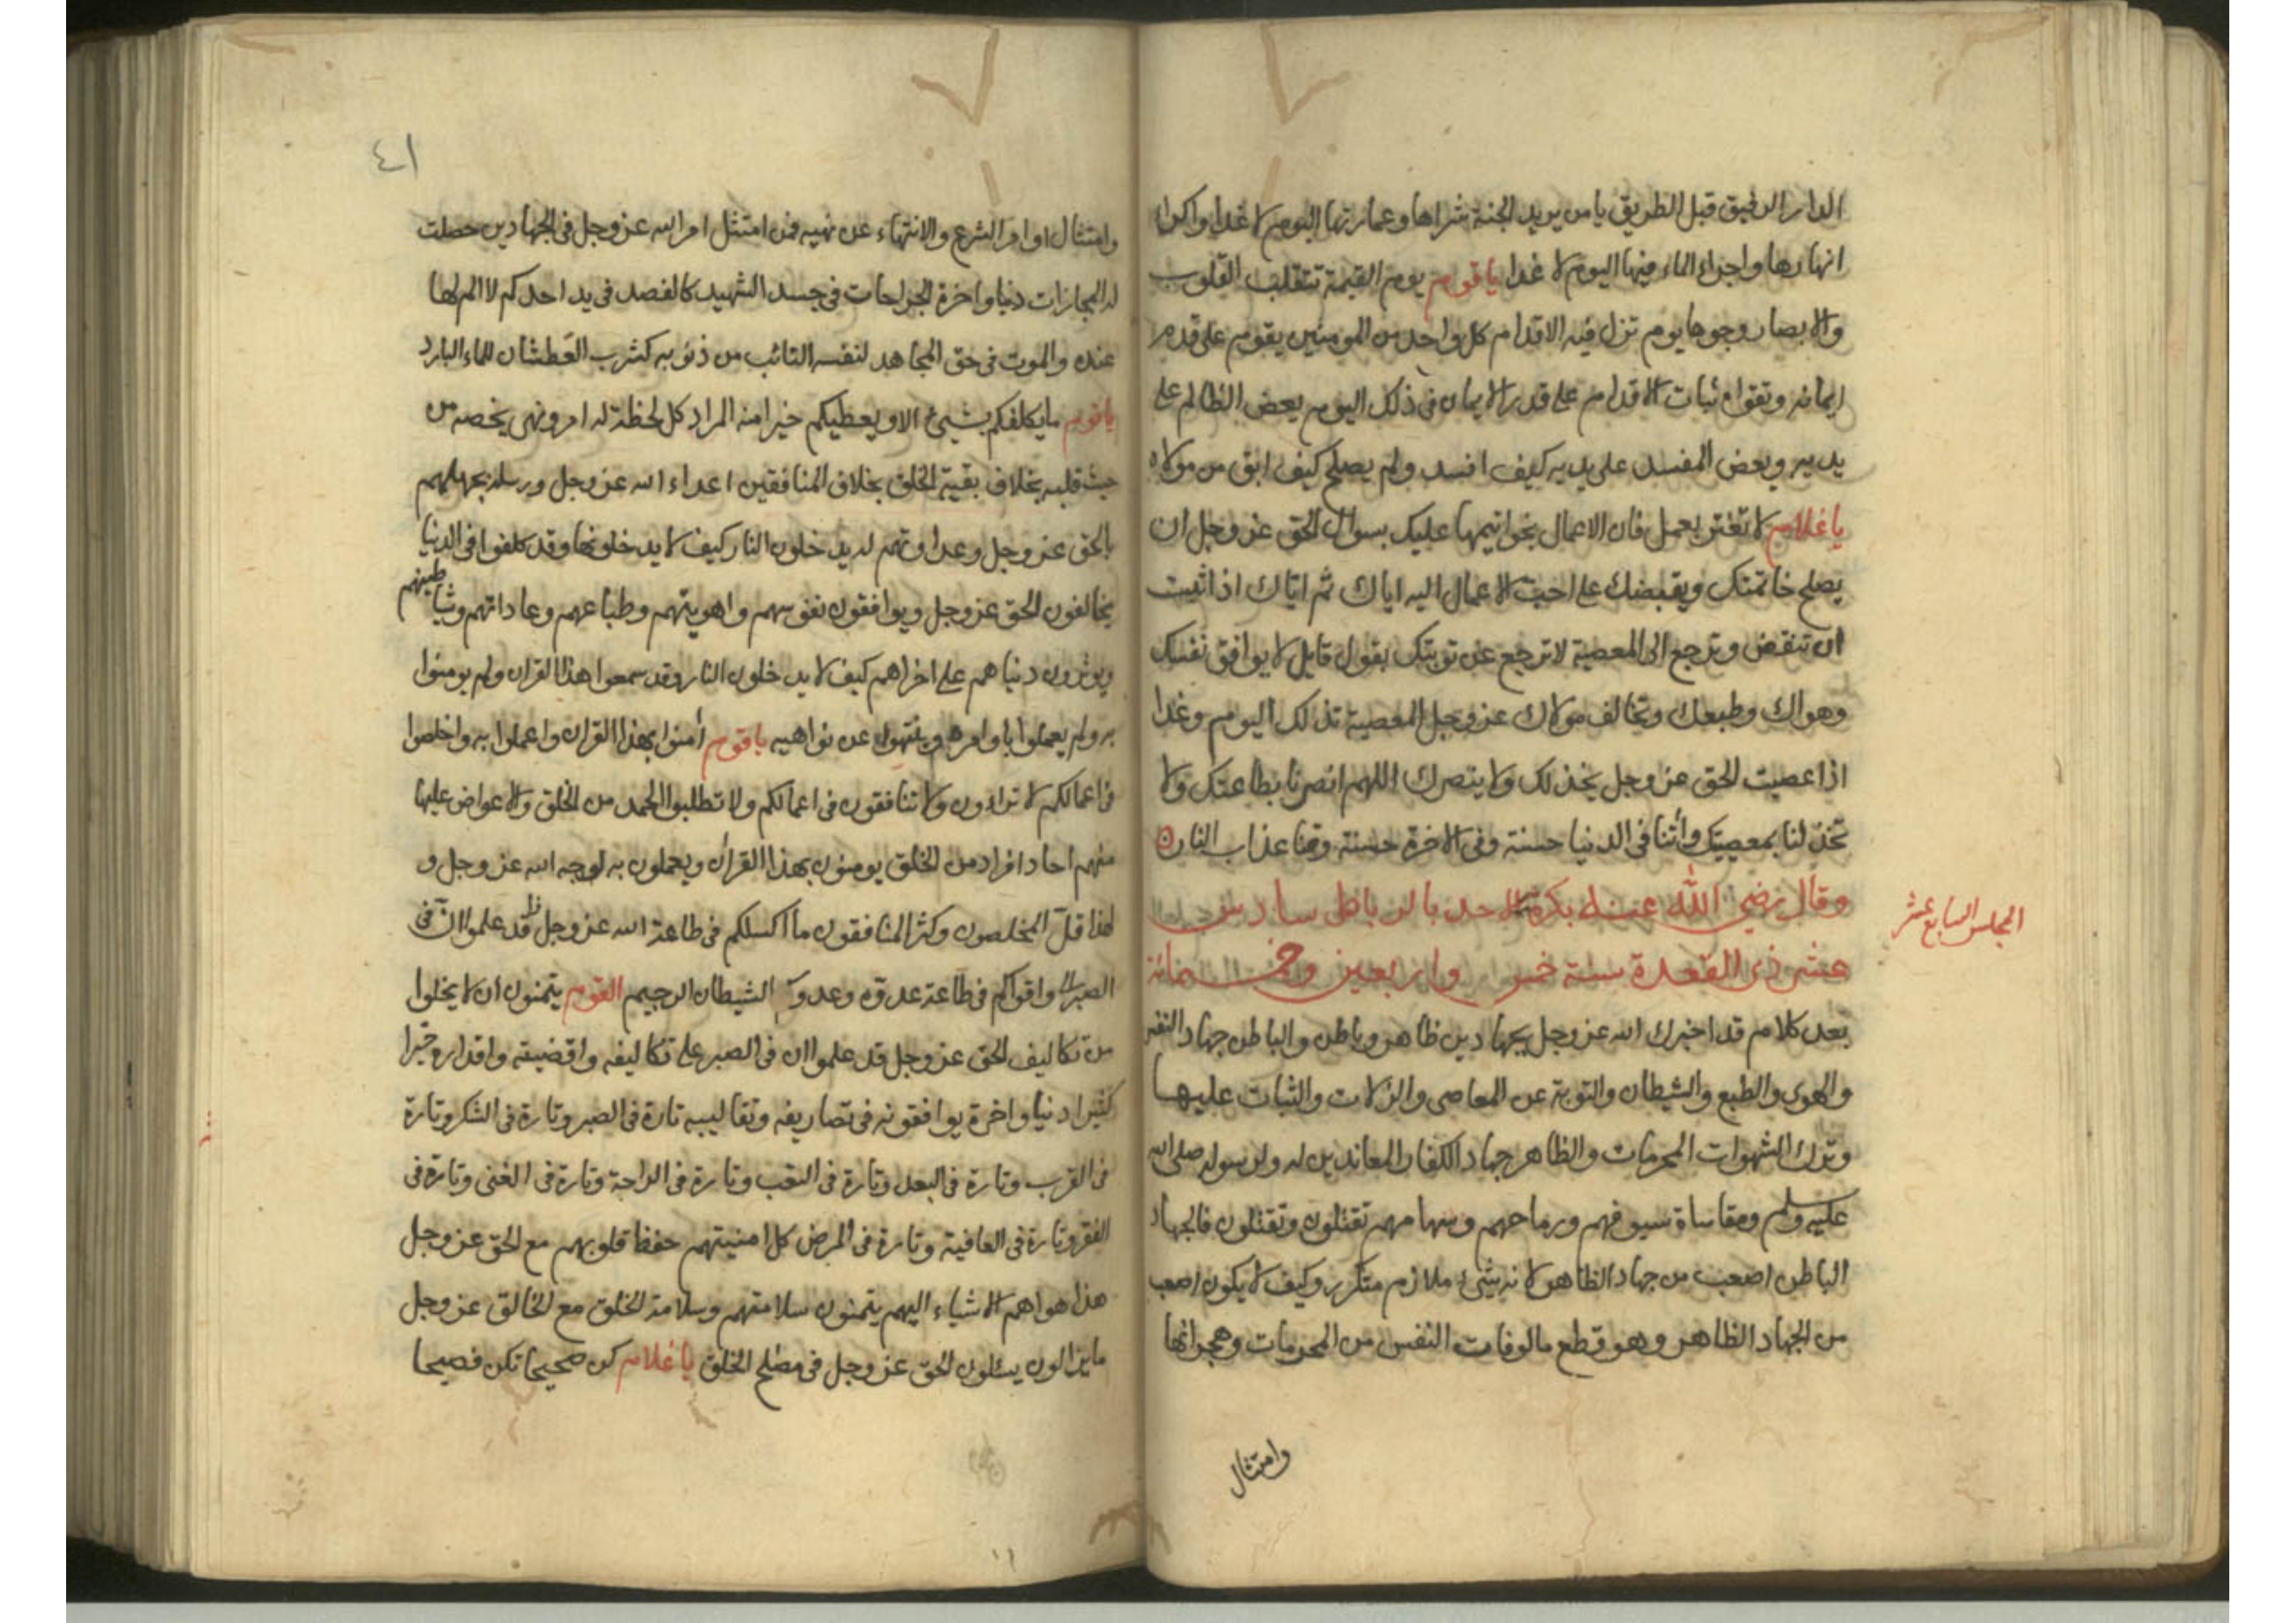 الدار الرفيق قبل الطريق يا من يريد الجنة شراها وعمارتها اليوم لا غدا واكرا
انهارها واجراء الماء فيها اليوم لا غدا يا قوم يوم القيمة تتقلب القلوب
والابصار وجوها يوم تزل فيه الاقدام كل واحد من المومنين يقوم على قدم
ايمانه وتقواه ثبات الاقدام على قدر الايمان فى ذلك اليوم يعض الظالم على
يديه ويعض المفسد على يديه كيف افسد ولم يصلح كيف ابق من مولاه
يا غلام لا تغتر بعمل فان الاعمال بخواتيمها عليك بسوال الحق عز وجل ان
يصلح خاتمتك ويقبضك على احب الاعمال اليه اياك ثم اياك اذا تبت
ان تنقض وترجع الى المعصية لا ترجع عن توبتك بقول قايل لا يوافق نفسك
وهواك وطبعك وتخالف مولاك عز وجل المعصية تذلك اليوم وغدا
اذا عصيت الحق عز وجل يخذلك ولا ينصرك اللهم انصرنا بطاعتك ولا
تخذلنا بمعصيتك وأتنا فى الدنيا حسنة وفى الاخرة حسنة وقنا عذاب النار
وقال رضي الله عنه بكرة الاحد بالرباط سادس
عشر ذى القعدة سنة خمس واربعين وخمسمائة
المجلس السابع عشر
بعد كلام قد اخبرك الله عز وجل بجهادين ظاهر وباطن والباطن جهاد النفس
والهوى والطبع والشيطان والتوبة عن المعاصى والزلات والثبات عليها
وترك الشهوات المحرمات والظاهر جهاد الكفار المعاندين له ولرسوله صلى الله
عليه وسلم ومقاساة سيوفهم ورماحهم وسهامهم تقتلون وتقتلون فالجهاد
الباطن اصعب من جهاد الظاهر لانه شئ ملازم متكرر وكيف لا يكون اصعب
من الجهاد الظاهر وهو قطع مالوفات النفس من المحرمات وهجرانها
وامتثال
٤١
وامتثال اوامر الشرع والانتهاء عن نهيه فمن امتثل امر الله عز وجل فى الجهادين حصلت
له المجازات دنيا واخرة الجراحات فى جسد الشهيد كالفصد فى يد احدكم لا الم لها
عنده والموت فى حق المجاهد لنفسه التائب من ذنوبه كشرب العطشان للماء البارد
يا قوم ما يكلفكم بشيئ الا ويعطيكم خيرا منه المراد كل لحظة له امر ونهى يخصه من
حيث قلبه بخلاف بقية الخلق بخلاف المنافقين اعداء الله عز وجل ورسله بجهلهم
بالحق عز وجل وعداوتهم له يدخلون النار كيف لا يدخلونها وقد كلفوا فى الدنيا
يخالفون الحق عز وجل ويوافقون نفوسهم واهويتهم وطباعهم وعاداتهم وشياطينهم
ويوثرون دنياهم على اخراهم كيف لا يدخلون النار وقد سمعوا هذا القران ولم يومنوا
به ولم يعملوا باوامره وينتهون عن نواهيه يا قوم أمنوا بهذا القران واعملوا به واخلصوا
فى اعمالكم لا تراؤن ولا تنافقون فى اعمالكم ولا تطلبوا الحمد من الخلق والاعواض عليها
منهم احاد افراد من الخلق يومنون بهذا القرأن ويعملون به لوجه الله عز وجل و
لهذا قل المخلصون وكثر المنافقون ما اكسلكم فى طاعة الله عز وجل قد علموا ان فى
الصبر واقواكم فى طاعة عدوه وعدوكم الشيطان الرجيم القوم يتمنون ان لا يخلوا
من تكاليف الحق عز وجل قد علموا ان فى الصبر على تكاليفه واقضيته واقداره خيرا
كثيرا دنيا واخرة يوافقونه فى تصاريفه وتقاليبه تارة فى الصبر وتارة فى الشكر وتارة
فى القرب وتارة فى البعد وتارة فى التعب وتارة فى الراحة وتارة فى الغنى وتارة فى
الفقر وتارة فى العافية وتارة فى المرض كل امنيتهم حفظ قلوبهم مع الحق عز وجل
هذا هو اهم الاشياء اليهم يتمنون سلامتهم وسلامة الخلق مع الخالق عز وجل
ما يزالون يسئلون الحق عز وجل فى مصلح الخلق يا غلام كن صحيحا تكن فصيحا